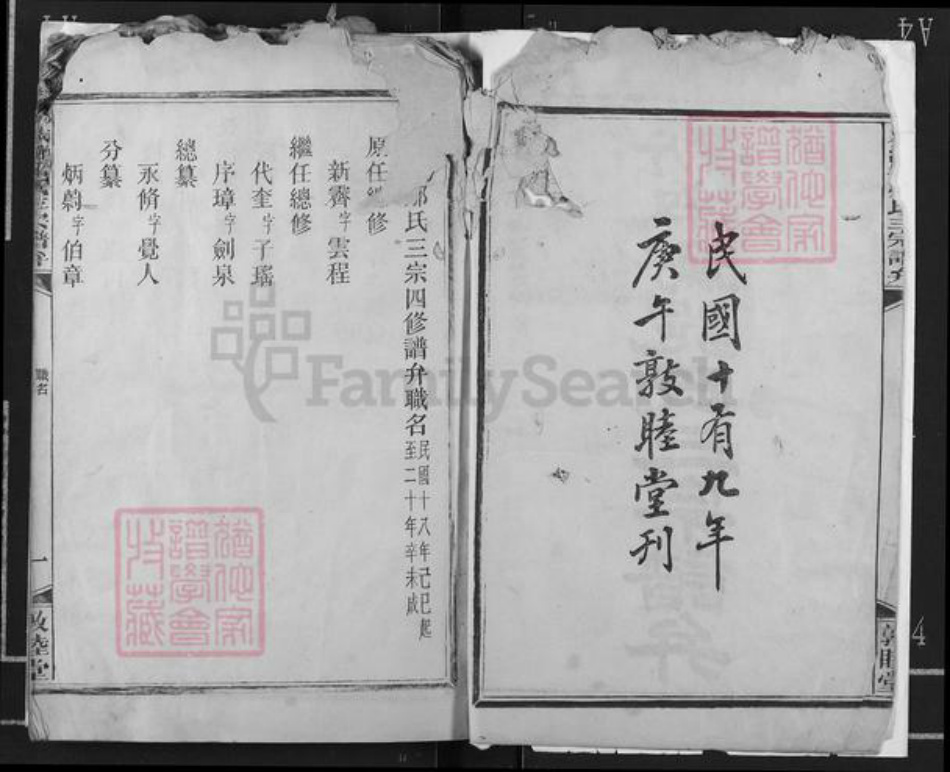 民國十有九年
庚午敦睦堂刊
氏三宗四修譜弁職名民國十八年己巳起至二十年辛未成
原任 修
新霽字雲程
繼任總修
代奎字子瑤
序璋字劍泉
總纂
永脩字覺人
分纂
炳蔚字伯章
職名
一
敦睦堂
氏三宗譜弁
敦睦堂
猶他家譜學會特藏
猶他家譜學會特藏
FamilySearch
A4
4